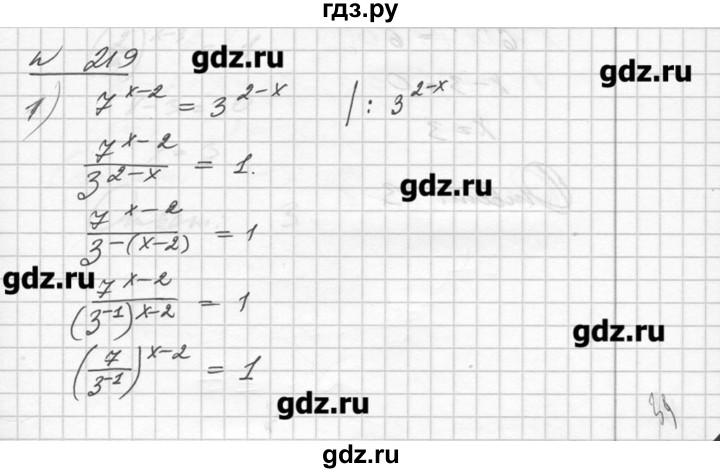 гдз.ру
№ 219 gdz.ru
gdz.ru
1) 7^{x-2} = 3^{2-x} | : 3^{2-x}
\frac{7^{x-2}}{3^{2-x}} = 1.
gdz.ru
\frac{7^{x-2}}{3^{-(x-2)}} = 1
gdz.ru
\frac{7^{x-2}}{(3^{-1})^{x-2}} = 1
gdz.ru
(\frac{7}{3^{-1}})^{x-2} = 1
gdz.ru
39
gdz.ru